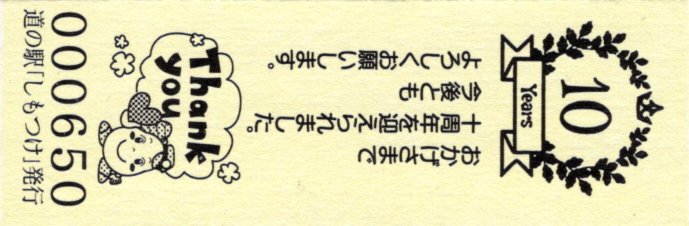 10
Years
おかげさまで
十周年を迎えられました。
今後とも
よろしくお願いします。
Thank
you
000650
道の駅「しもつけ」発行